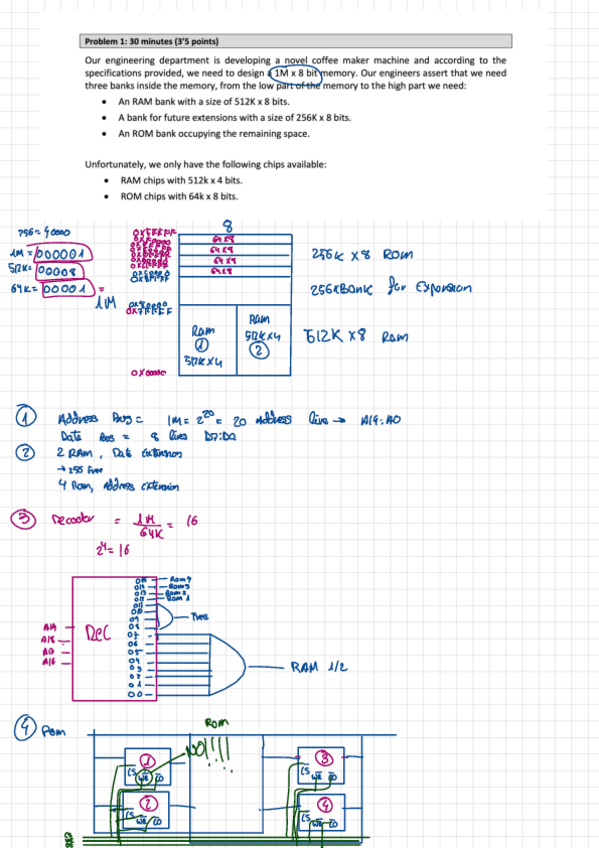 Problem 1: 30 minutes (3'5 points)
Our engineering department is developing a novel coffee maker machine and according to the
specifications provided, we need to design a 1M x 8 bit memory. Our engineers assert that we need
three banks inside the memory, from the low part of the memory to the high part we need:
• An RAM bank with a size of 512K x 8 bits.
• A bank for future extensions with a size of 256K x 8 bits.
• An ROM bank occupying the remaining space.
Unfortunately, we only have the following chips available:
• RAM chips with 512k x 4 bits.
• ROM chips with 64k x 8 bits.
8
256 = 40000
1M = 000001
512K = 00008
64K = 00001 =
1M
0xFFFFF
64x8
64x8
64x8
64x8
0x7FFFF
0x00000
256K x8 ROM
256KBank for Expansion
512K x8 Ram
Ram
1
512K x4
Ram
512K x4
2
1 Address Bus = 1M = 2^20 = 20 Address lines → A19:A0
Data Bus = 8 lines D7:D0
2 2 RAM, Data extension
→ 256 Free
4 Rom, Address extension
3 Decoder = 1M/64K = 16
2^4 = 16
DEC
A19
A18
A16
015
014
013
012
011
010
09
08
07
06
05
04
03
02
01
00
Rom4
Rom3
Rom2
Rom 1
Free
RAM 1/2
4
Rom
NO!!!!
1
CS WE
2
CS WE
3
CS WE
4
CS WE